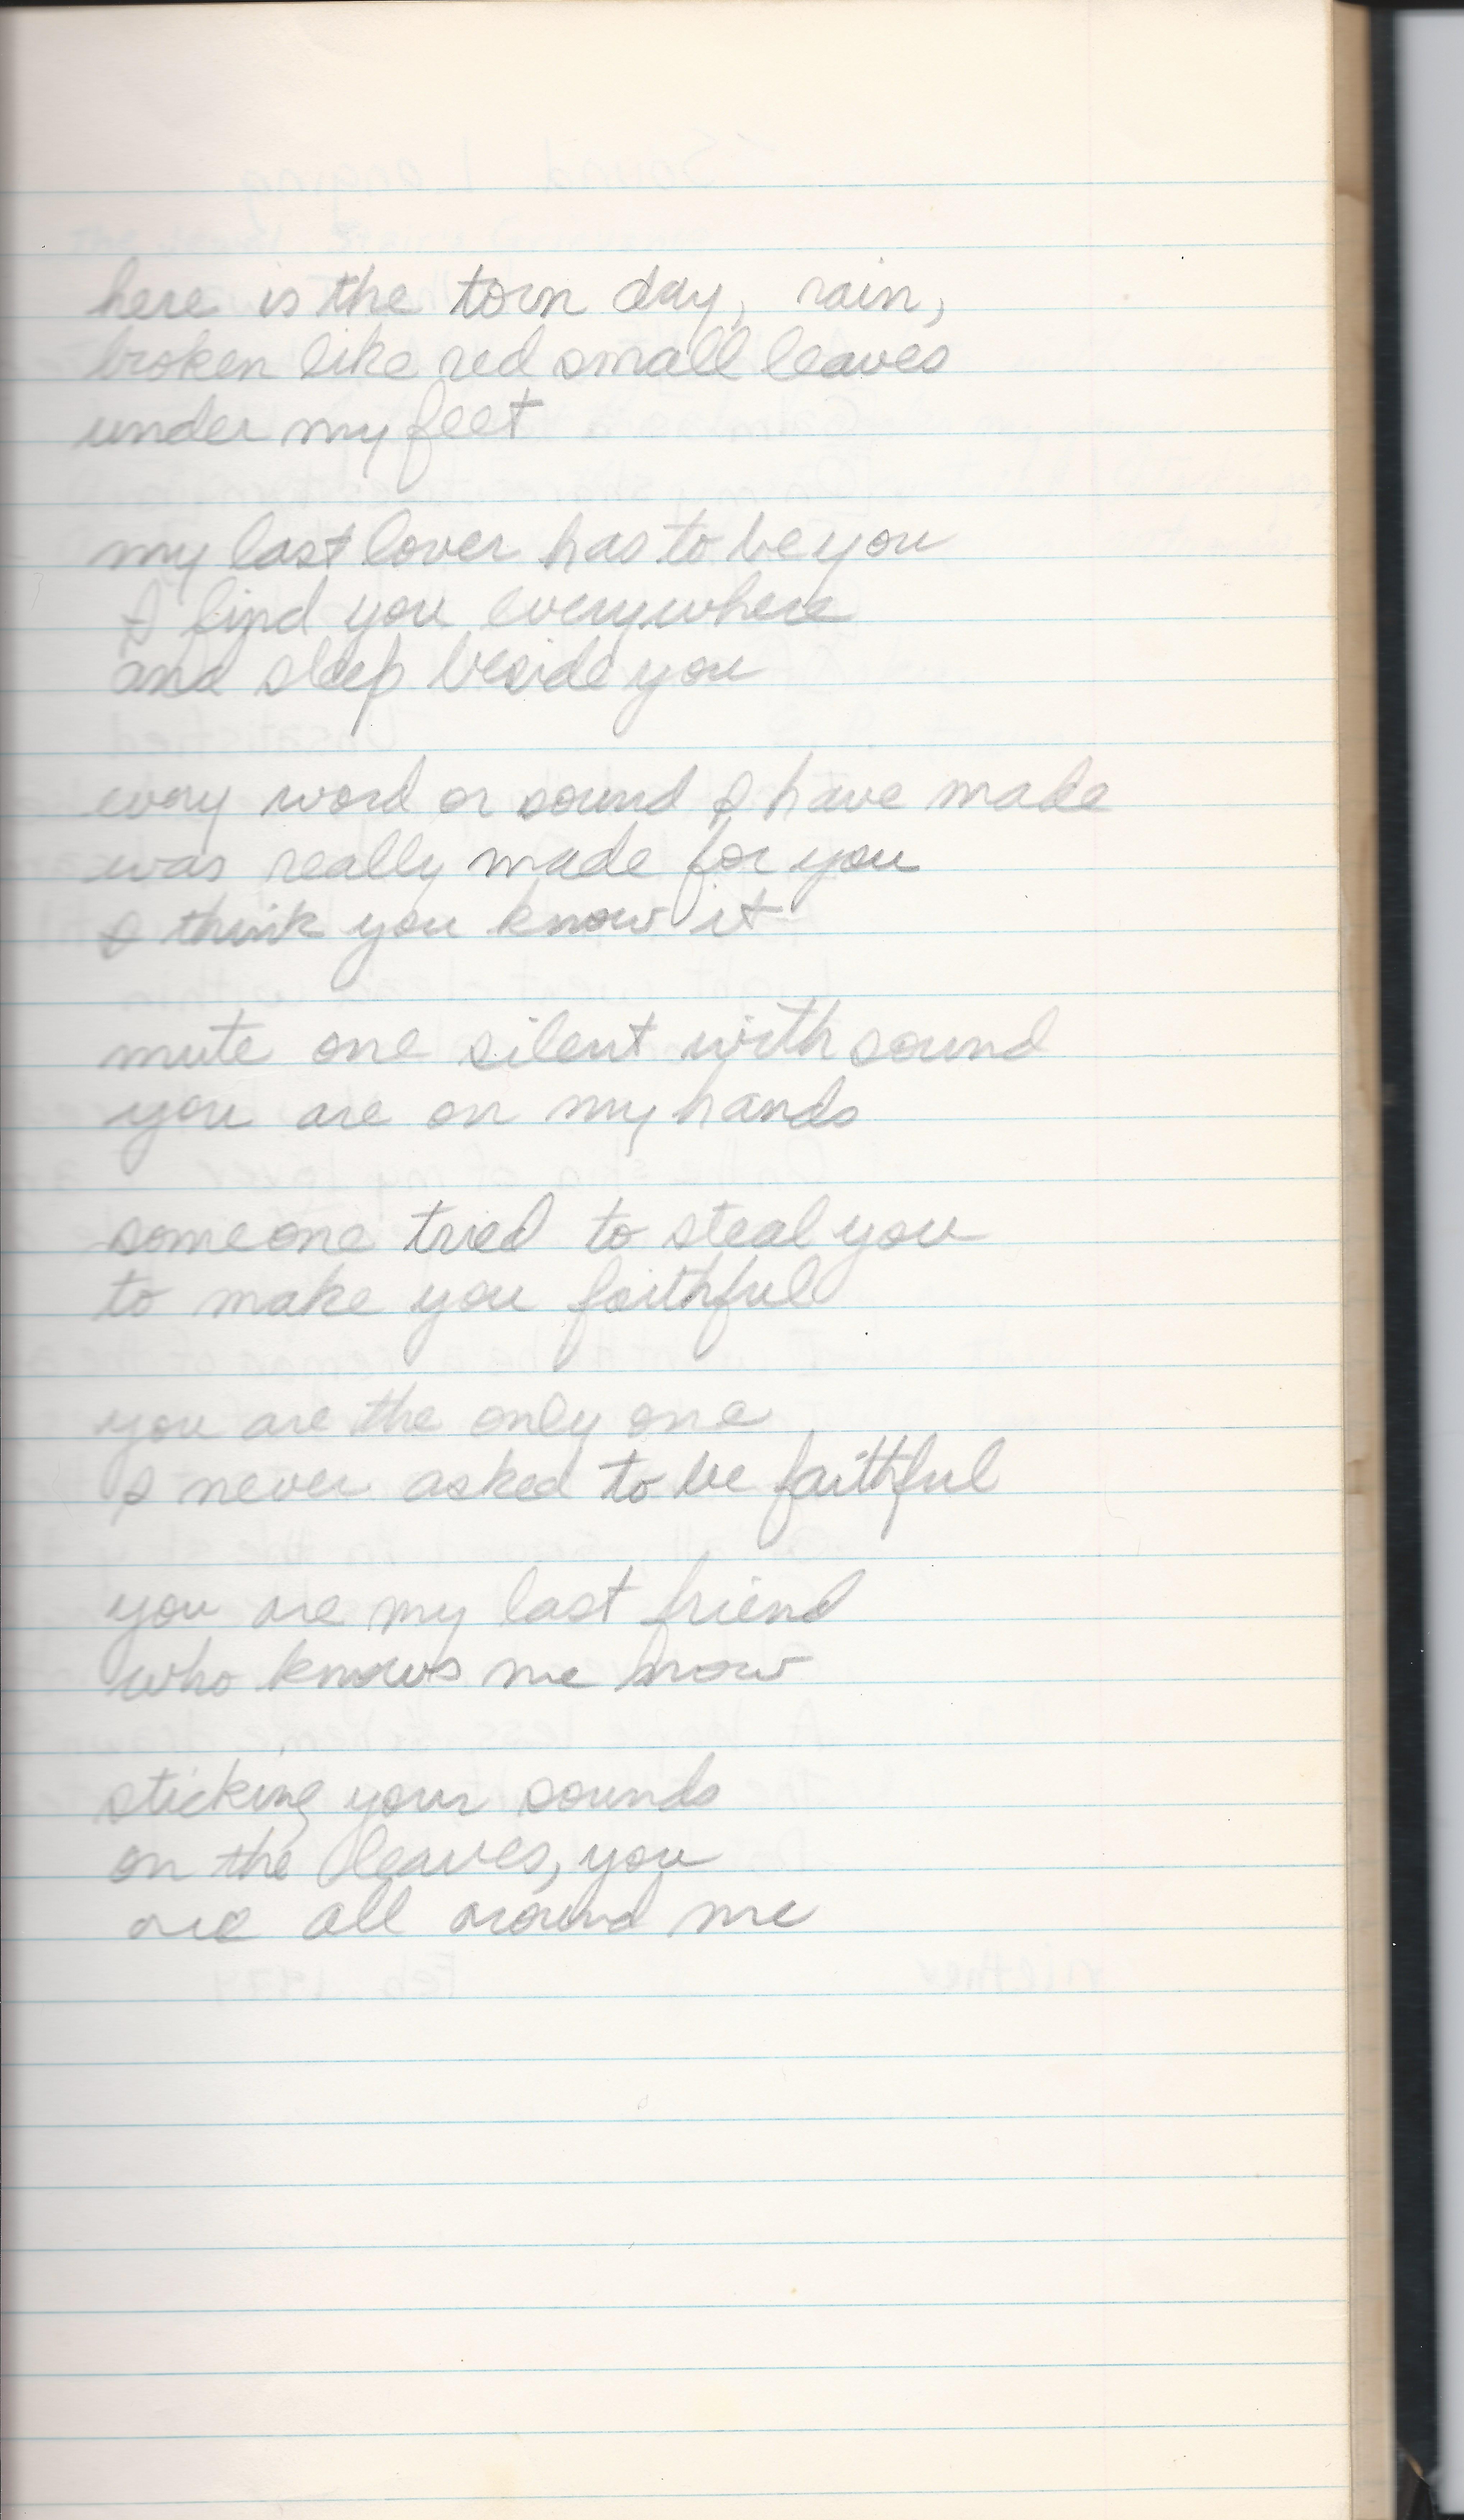 here is the torn day, rain,
broken like red small leaves
under my feet
my last lover has to be you
I find you everywhere
and sleep beside you
every word or sound I have made
was really made for you
I think you know it
mute one silent with sound
you are on my hands
someone tried to steal you
to make you faithful
you are the only one
I never asked to be faithful
you are my last friend
who knows me now
sticking your sounds
on the leaves, you
are all around me